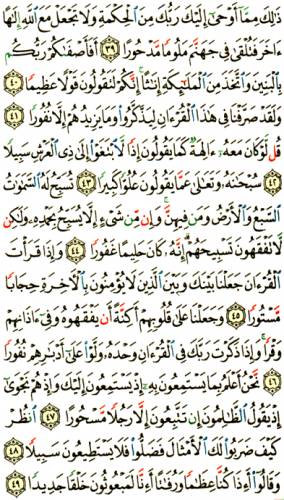 ذَٰلِكَ مِمَّآ أَوْحَىٰٓ إِلَيْكَ رَبُّكَ مِنَ ٱلْحِكْمَةِ وَلَا تَجْعَلْ مَعَ ٱللَّهِ إِلَٰهًا
ءَاخَرَ فَتُلْقَىٰ فِي جَهَنَّمَ مَلُومًا مَّدْحُورًا ٣٩ أَفَأَصْفَىٰكُمْ رَبُّكُم
بِٱلْبَنِينَ وَٱتَّخَذَ مِنَ ٱلْمَلَٰٓئِكَةِ إِنَٰثًا إِنَّكُمْ لَتَقُولُونَ قَوْلًا عَظِيمًا ٤٠
وَلَقَدْ صَرَّفْنَا فِي هَٰذَا ٱلْقُرْءَانِ لِيَذَّكَّرُوا۟ وَمَا يَزِيدُهُمْ إِلَّا نُفُورًا ٤١
قُل لَّوْ كَانَ مَعَهُۥٓ ءَالِهَةٌ كَمَا يَقُولُونَ إِذًا لَّٱبْتَغَوْا۟ إِلَىٰ ذِي ٱلْعَرْشِ سَبِيلًا
٤٢ سُبْحَٰنَهُۥ وَتَعَٰلَىٰ عَمَّا يَقُولُونَ عُلُوًّا كَبِيرًا ٤٣ تُسَبِّحُ لَهُ ٱلسَّمَٰوَٰتُ
ٱلسَّبْعُ وَٱلْأَرْضُ وَمَن فِيهِنَّ وَإِن مِّن شَيْءٍ إِلَّا يُسَبِّحُ بِحَمْدِهِۦ وَلَٰكِن
لَّا تَفْقَهُونَ تَسْبِيحَهُمْ إِنَّهُۥ كَانَ حَلِيمًا غَفُورًا ٤٤ وَإِذَا قَرَأْتَ
ٱلْقُرْءَانَ جَعَلْنَا بَيْنَكَ وَبَيْنَ ٱلَّذِينَ لَا يُؤْمِنُونَ بِٱلْءَاخِرَةِ حِجَابًا
مَّسْتُورًا ٤٥ وَجَعَلْنَا عَلَىٰ قُلُوبِهِمْ أَكِنَّةً أَن يَفْقَهُوهُ وَفِيٓ ءَاذَانِهِمْ
وَقْرًا وَإِذَا ذَكَرْتَ رَبَّكَ فِي ٱلْقُرْءَانِ وَحْدَهُۥ وَلَّوْا۟ عَلَىٰٓ أَدْبَٰرِهِمْ نُفُورًا
٤٦ نَّحْنُ أَعْلَمُ بِمَا يَسْتَمِعُونَ بِهِۦٓ إِذْ يَسْتَمِعُونَ إِلَيْكَ وَإِذْ هُمْ نَجْوَىٰٓ
إِذْ يَقُولُ ٱلظَّٰلِمُونَ إِن تَتَّبِعُونَ إِلَّا رَجُلًا مَّسْحُورًا ٤٧ ٱنظُرْ
كَيْفَ ضَرَبُوا۟ لَكَ ٱلْأَمْثَالَ فَضَلُّوا۟ فَلَا يَسْتَطِيعُونَ سَبِيلًا ٤٨
وَقَالُوٓا۟ أَءِذَا كُنَّا عِظَٰمًا وَرُفَٰتًا أَءِنَّا لَمَبْعُوثُونَ خَلْقًا جَدِيدًا ٤٩